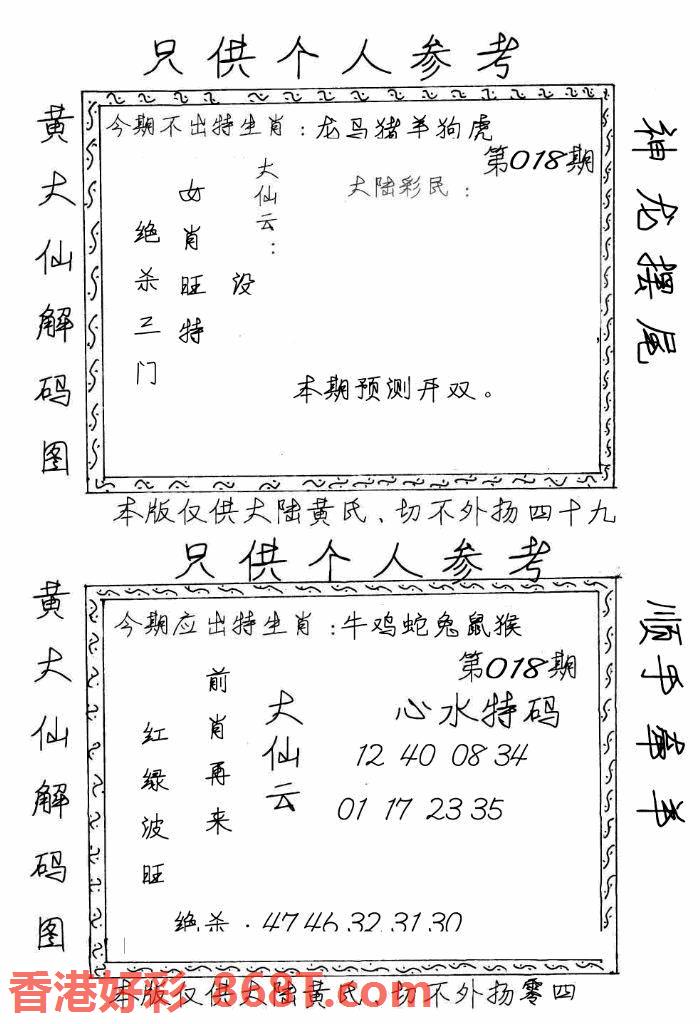 只供个人参考
黄大仙解码图
今期不出特生肖：龙马猪羊狗虎
第018期
大陆彩民：
大仙云：
女肖旺特
设
绝杀三门
本期预测开双。
神龙摆尾
本版仅供大陆黄氏、切不外扬四十九
只供个人参考
黄大仙解码图
今期应出特生肖：牛鸡蛇兔鼠猴
第018期
心水特码
12 40 08 34
01 17 23 35
大仙云
前肖再来
红绿波旺
绝杀：47 46 32 31 30
顺手牵羊
香港好彩 868T.com
本版仅供大陆黄氏、切不外扬零四